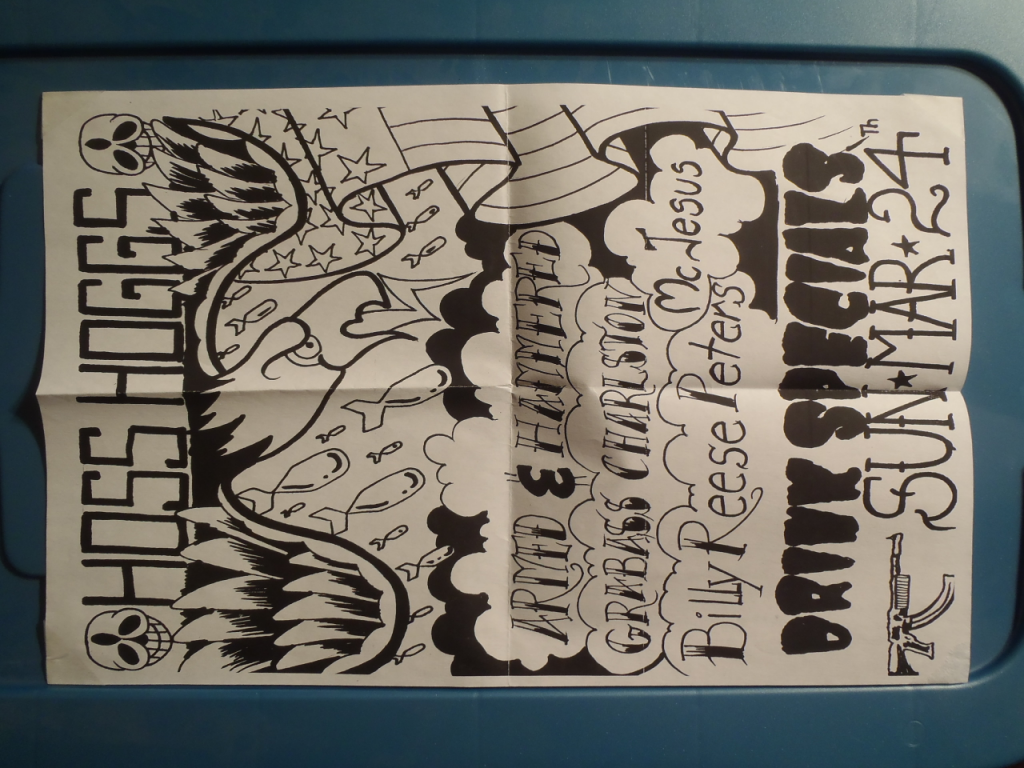 HOSS HOGGS
ARMED & HAMMERED
GRABASS CHARLSTON
Mc Jesus
Billy Reese Peters
DRINK SPECIALS
SUN★MAR★24Th